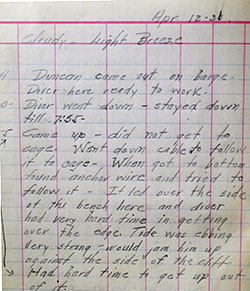 Apr 12-26
Cloudy - Light Breeze
Duncan came out on barge.
Diver here ready to work.
Diver went down - stayed down
till 7:55-
Came up - did not get to
cage. Went down cable to follow
it to cage - When got to bottom
found anchor wire and tried to
follow it - It led over the side
of the bench here and diver
had very hard time in getting
over the edge. Tide was ebbing
very strong - would jam him up
against the side of the cliff.
Had hard time to get up out
of it.